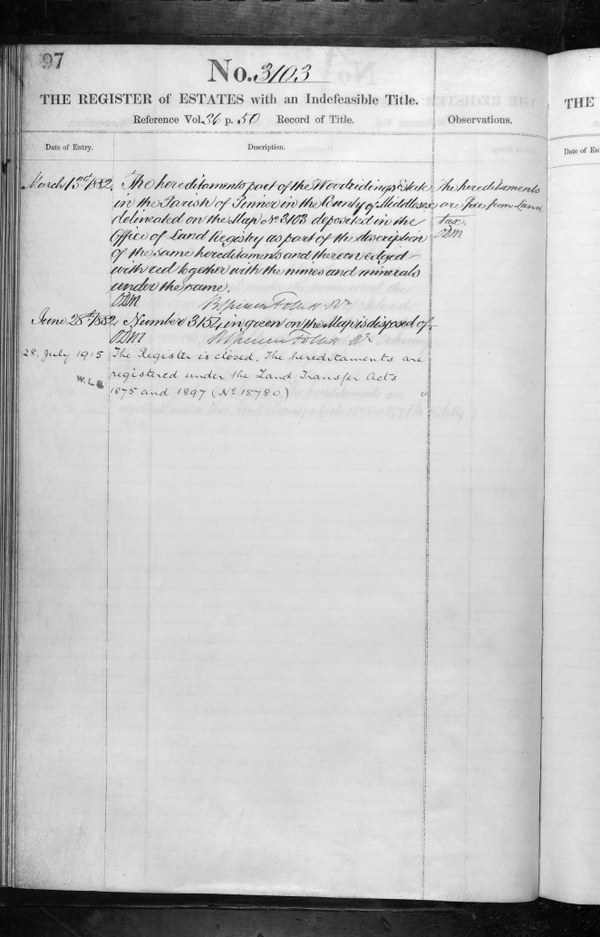 97
No. 3103
THE REGISTER of ESTATES with an Indefeasible Title.
Reference Vol. 36 p. 50 Record of Title.
Observations.
Date of Entry.
Description.
March 1882
The hereditaments part of the Woodridings Estate
in the Parish of Pinner in the County of Middlesex
delineated on the Map No 3103 deposited in the
Office of Land Registry as part of the description
of the same hereditaments and thereon edged
with red together with the mines and minerals
under the same.
The hereditaments
are free from Land
tax.
June 28th 1882
Number 3154 in green on the Map is disposed of
28. July 1915
W.L.B
The Register is closed. The hereditaments are
registered under the Land Transfer Acts
1875 and 1897 (No 18780.)
THE
Date of En